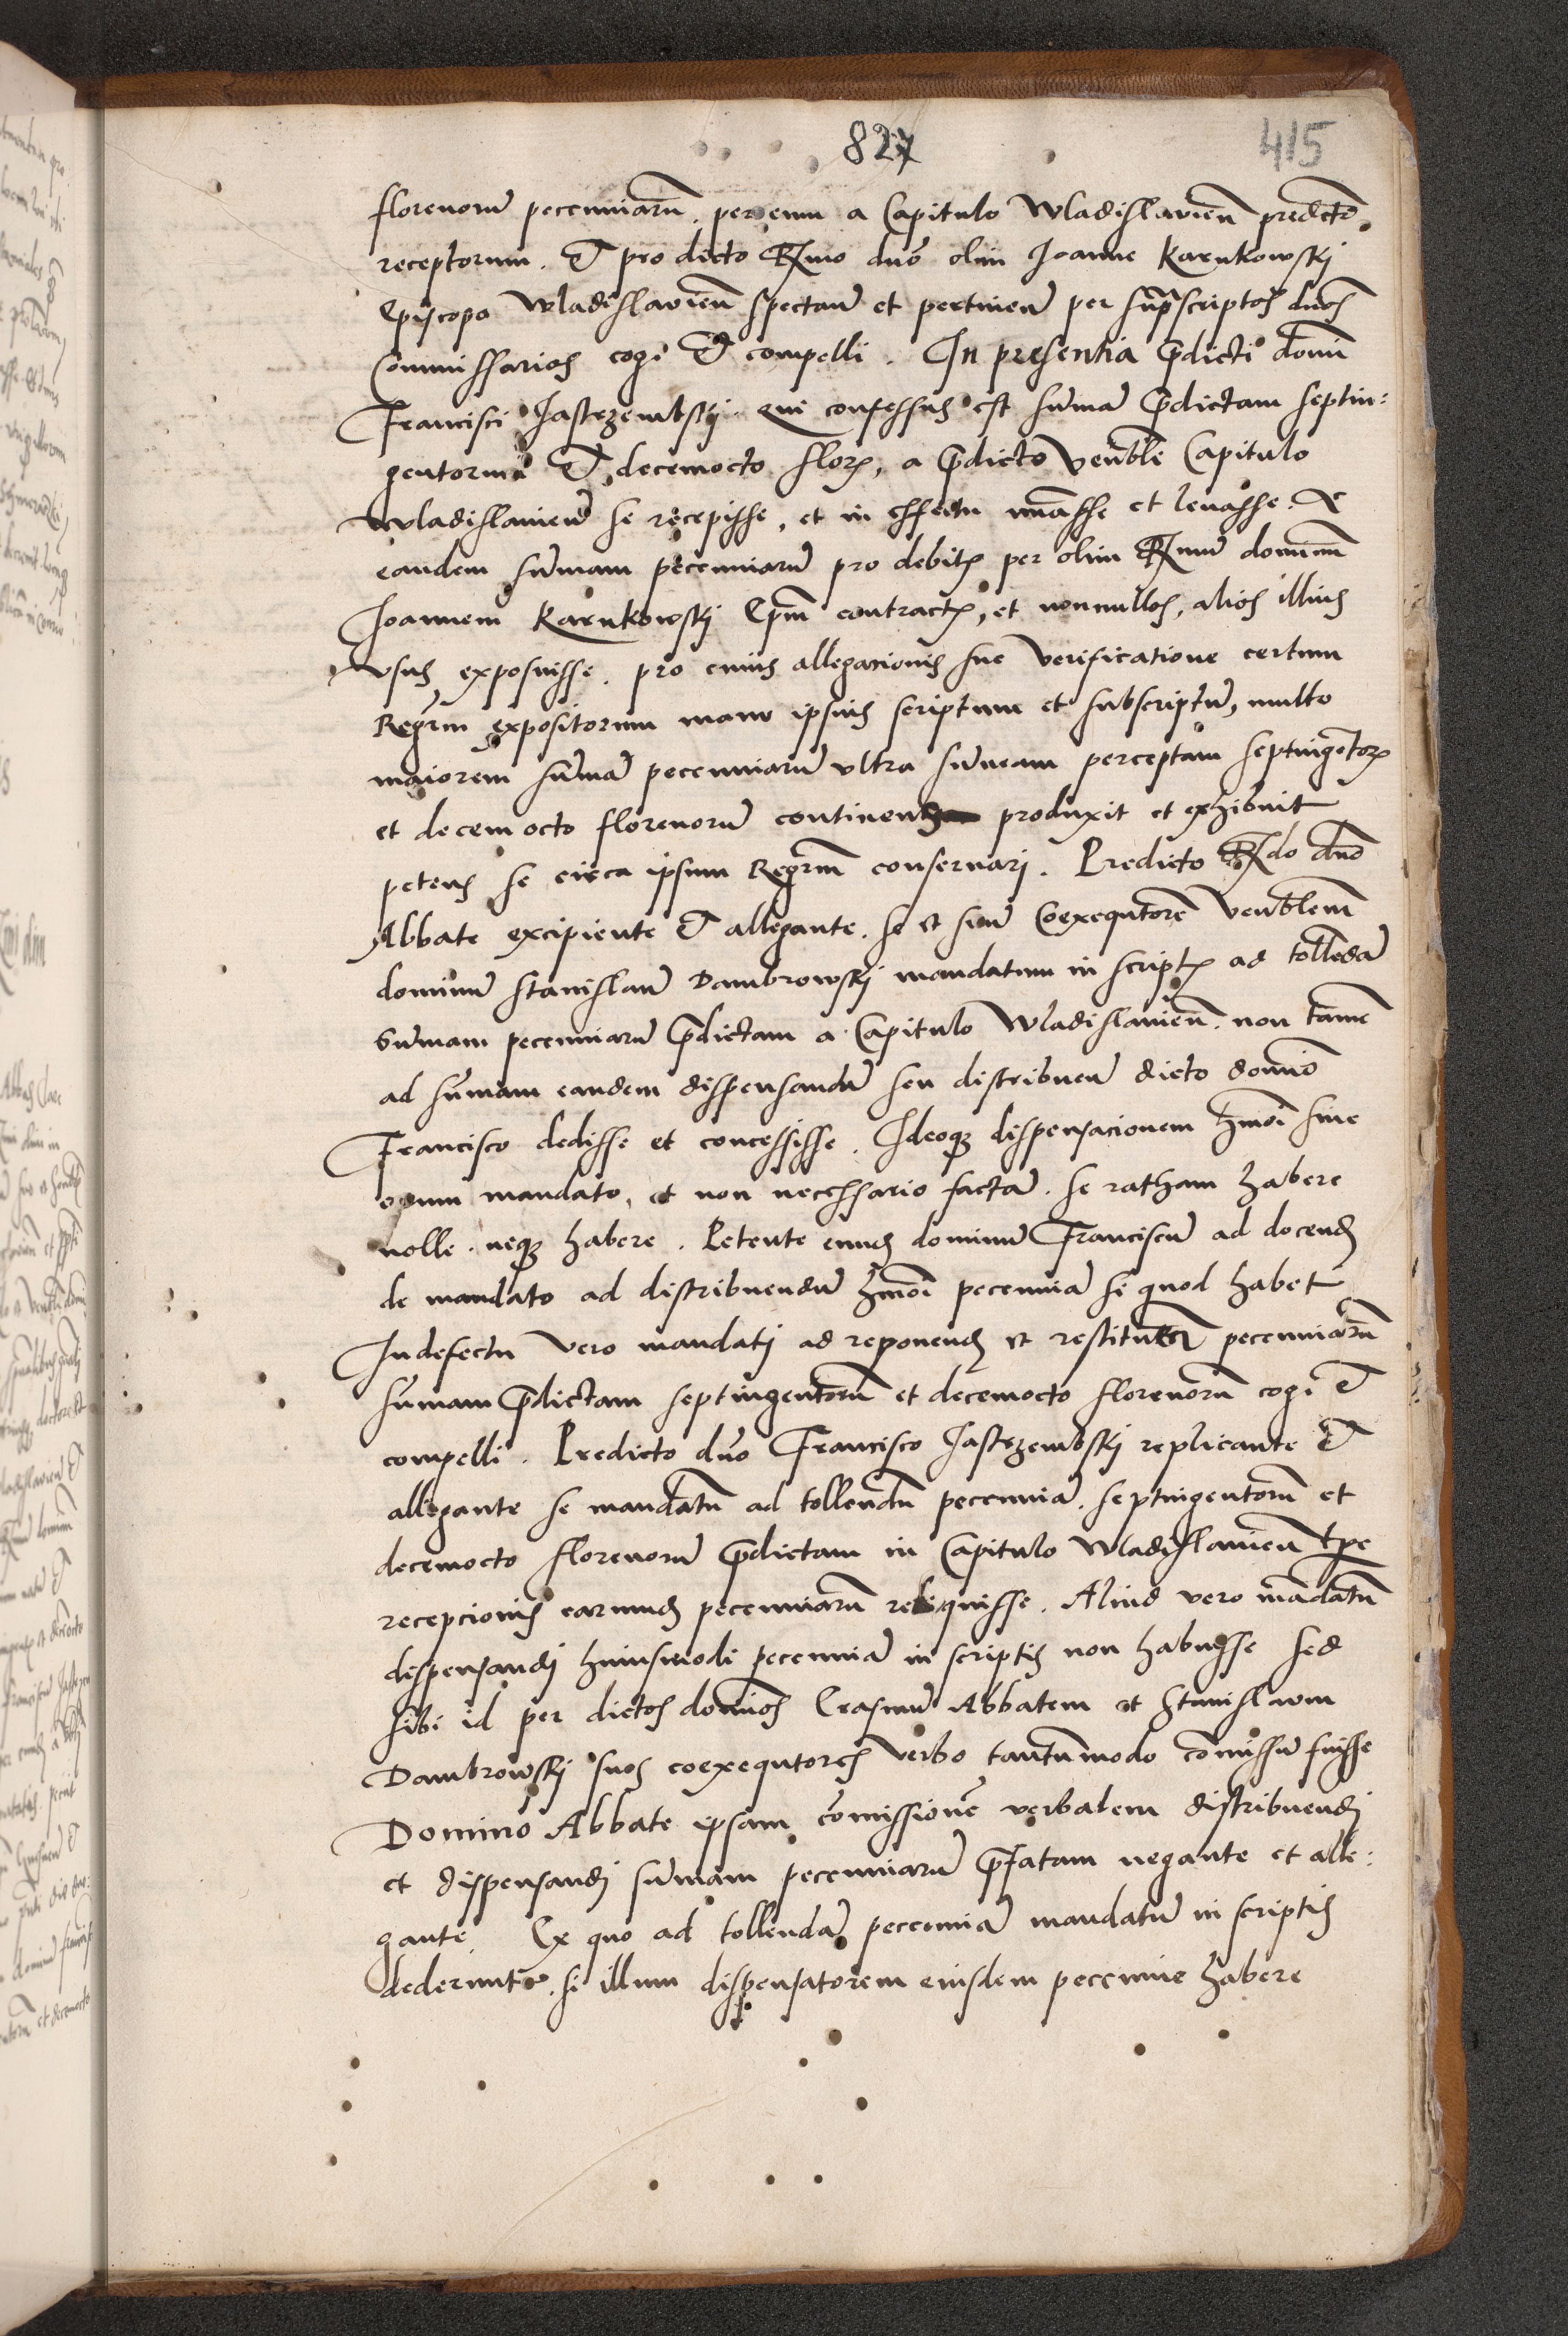 827
415
florenorum pecunniarũ. per eum a Capitulo Wladislavień predcto.
receptorum. Et pro dicto Rmo dnõ olim Joanne Karnkowskj
Episcopo Wladislavień spectan̄ et pertinen̄ per supᵃscriptos dnõs
Commissarios cogi Et compelli. In presentia p̄dicti domĩ
Francisci Jastrzembskj. qui confessus est sum̃a p̄dictam septin:
gentorum Et decemocto flor, a p̄dicto Venb̃le Capitulo
Wladislavień se recepisse, et in effectu et levasse. Et
eandem sum̃am pecunniarũ pro debit per olim Rmũ dominũ
Joannem Karnkowskj Ep̃m contract, et nonnullos, alios illius
vsus exposuisse. pro cuius allegacionis sue verificatione certum
Regr̃m expositorum manu ipsius scriptum et subscriptũ, multo
maiorem sum̃ã pecunniarũ vltra sum̃am perceptam septingẽtor
et decem octo florenorũ continens produxit et exhibuit
petens se circa ipsum Regr̃m conservarj. Predicto Rdo dnõ
Abbate excipiente Et allegante. se et suũ Coexequtorẽ Venb̃lem
dominũ Stanislaũ Dambrowskj mandatum in script ad tollẽdã
Sum̃am pecunniarũ p̄dictam a Capitulo Wladislavień. non tamẽ
ad sum̃am eandem dispensandã seu distribueñ dicto domiõ
Francisco dedisse et concessisse. Ideoq dispensacionem hm̃oi sine
eorum mandato, et non necessario factã. se ratham habere
nolle. neq habere. Petente eund dominũ Franciscũ ad docend
de mandato ad distribuendũ hm̃oi pecunniã si quod habet
In defectu vero mandatj ad reponend et restitueñ pecunniarũ
sum̃am p̄dictam septingentorũ et decemocto florenorũ cogi Et
compelli. Predicto dnõ Francisco Jastrzembskj replicante Et
allegante se mandatũ ad tollendũ pecunniã. septingentorũ et
decemocto florenorũ p̄dictam in Capitulo Wladislavień tp̃e
recepcionis earund pecunniarũ reliquisse. Aliud vero mãdatũ
dispensandj huiusmodi pecunniã in scriptis non habuisse sed
sibi id per dictos domiõs Erasmũ Abbatem et Stanislaum
Dambrowskj suos coexequtores verbo tantummodo com̃issũ fuisse
Domino Abbate ipsam com̃issionẽ verbalem distribuendj
et dispensandj sum̃am pecunniarũ p̄fatam negante et alle:
gante. Ex quo ad tollendã pecunniã mandatũ in scriptis
dederunt. si illum dispensatorem eiusdem pecunnie habere